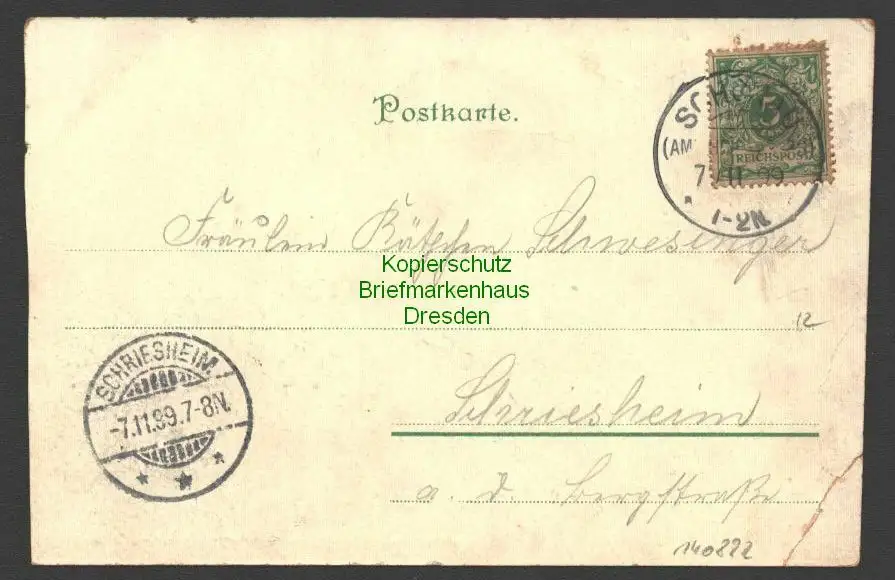 Postkarte.
5
REICHSPOST
(AM
7 11 99
1-2N.
Fräulein Käthchen Schwesinger
Kopierschutz
Briefmarkenhaus
Dresden
12
SCHRIESHEIM.
-7.11.99.7-8N.
Schriesheim
a. d. Bergstraße
140822